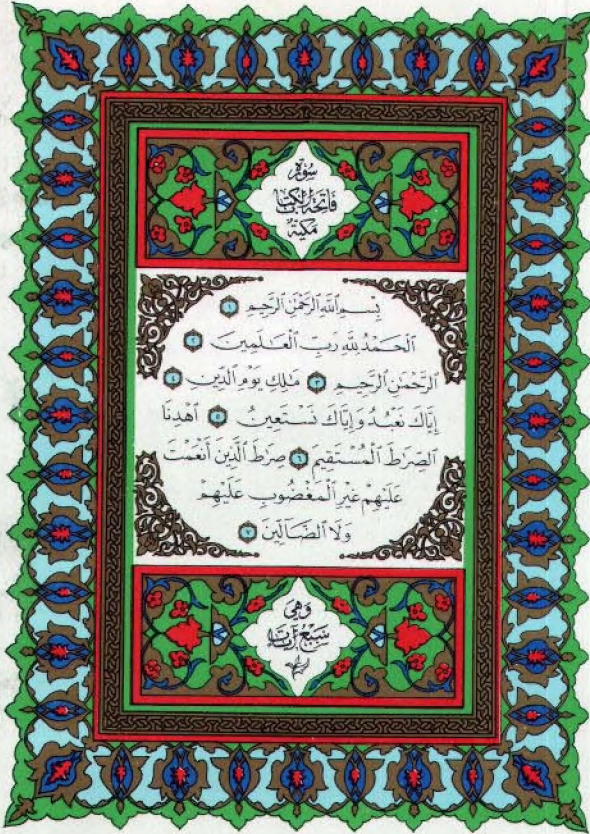 سُورَةُ
فَاتِحَةُ الكِتَابِ
مَكِّيَّةٌ
بِسْمِ ٱللَّهِ ٱلرَّحْمَٰنِ ٱلرَّحِيمِ ١
ٱلْحَمْدُ لِلَّهِ رَبِّ ٱلْعَٰلَمِينَ ٢
ٱلرَّحْمَٰنِ ٱلرَّحِيمِ ٣ مَٰلِكِ يَوْمِ ٱلدِّينِ ٤
إِيَّاكَ نَعْبُدُ وَإِيَّاكَ نَسْتَعِينُ ٥ ٱهْدِنَا
ٱلصِّرَٰطَ ٱلْمُسْتَقِيمَ ٦ صِرَٰطَ ٱلَّذِينَ أَنْعَمْتَ
عَلَيْهِمْ غَيْرِ ٱلْمَغْضُوبِ عَلَيْهِمْ
وَلَا ٱلضَّآلِّينَ ٧
وَهِيَ
سَبْعُ آيَاتٍ